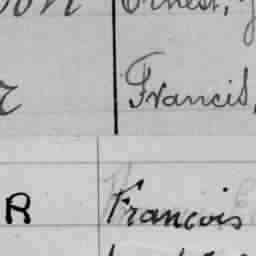 Ernest,
Francis,
R Francois